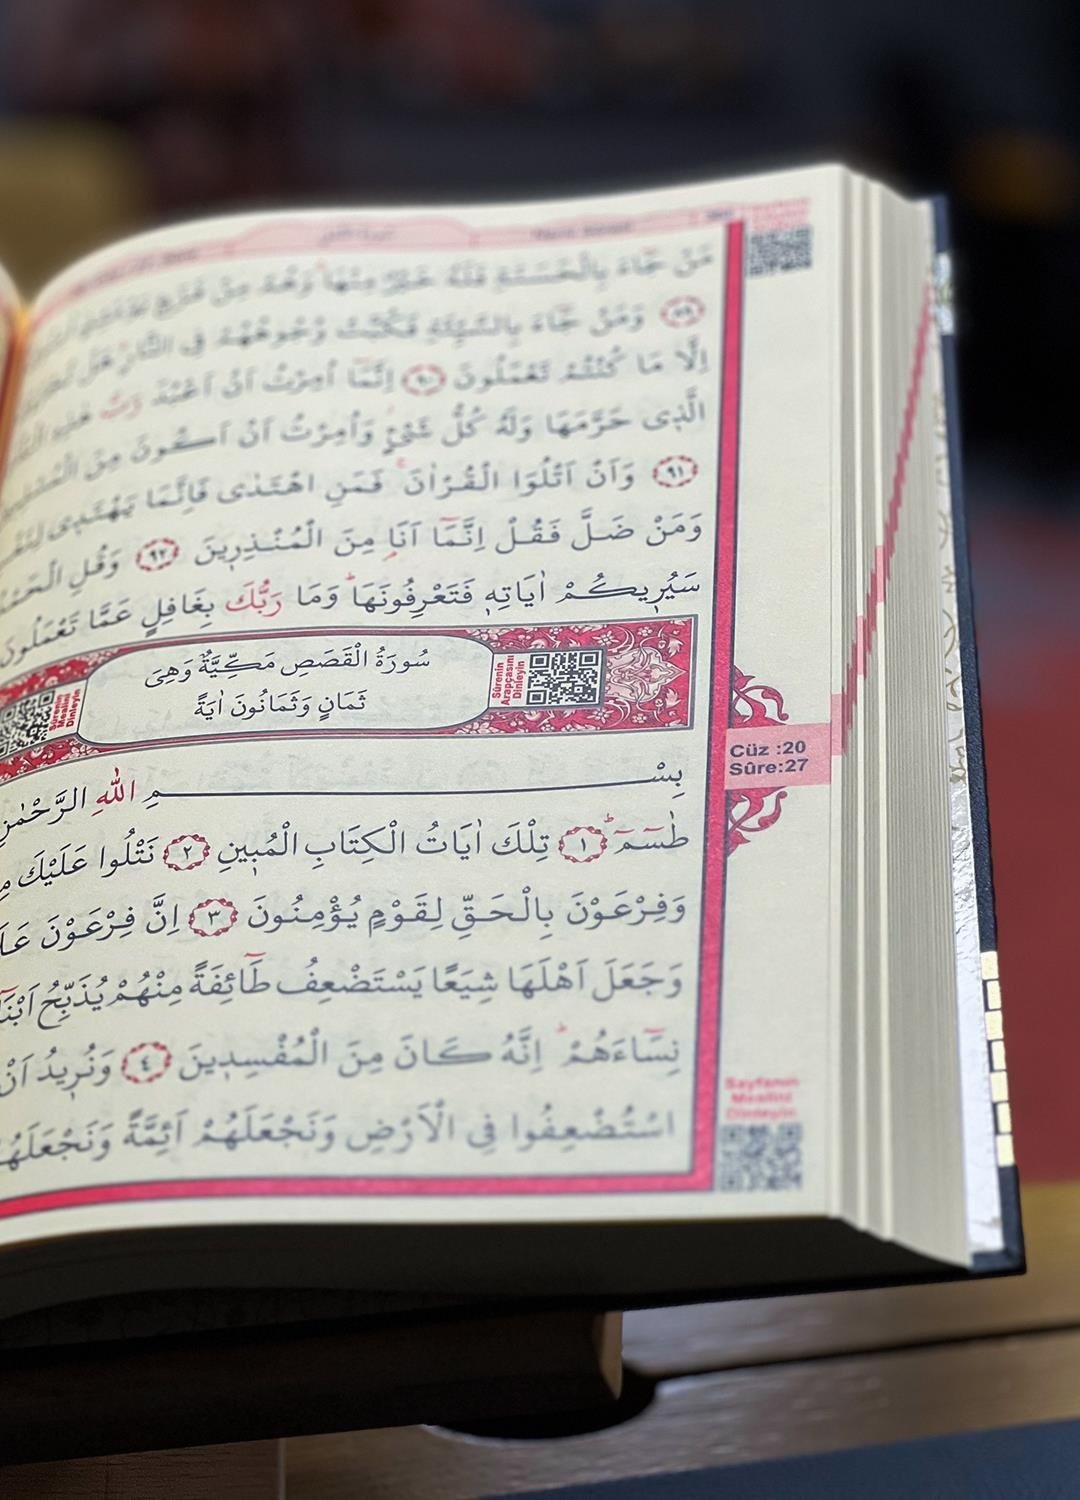 مَنْ جَٓاءَ بِالْحَسَنَةِ فَلَهُ خَيْرٌ مِنْهَا وَهُمْ مِنْ فَزَعٍ يَوْمَئِذٍ
٨٩ وَمَنْ جَٓاءَ بِالسَّيِّئَةِ فَكُبَّتْ وُجُوهُهُمْ فِي النَّارِ هَلْ
اِلَّا مَا كُنْتُمْ تَعْمَلُونَ ٩٠ اِنَّمَٓا اُمِرْتُ اَنْ اَعْبُدَ رَبَّ هٰذِهِ
الَّذِي حَرَّمَهَا وَلَهُ كُلُّ شَيْءٍ وَاُمِرْتُ اَنْ اَكُونَ مِنَ
٩١ وَاَنْ اَتْلُوَا الْقُرْاٰنَ فَمَنِ اهْتَدٰى فَاِنَّمَا يَهْتَدِي
وَمَنْ ضَلَّ فَقُلْ اِنَّمَٓا اَنَا۬ مِنَ الْمُنْذِرِينَ ٩٢ وَقُلِ
سَيُرِيكُمْ اٰيَاتِهِ فَتَعْرِفُونَهَا وَمَا رَبُّكَ بِغَافِلٍ عَمَّا تَعْمَلُونَ
سُورَةُ الْقَصَصِ مَكِّيَّةٌ وَهِيَ
ثَمَانٍ وَثَمَانُونَ اٰيَةً
Sûrenin
Arapçasını
Dinleyin
Sûrenin
Mealini
Dinleyin
Cüz :20
Sûre:27
بِسْــــمِ اللّٰهِ الرَّحْمٰنِ
طٰسٓمٓ ١ تِلْكَ اٰيَاتُ الْكِتَابِ الْمُبِينِ ٢ نَتْلُوا عَلَيْكَ
وَفِرْعَوْنَ بِالْحَقِّ لِقَوْمٍ يُؤْمِنُونَ ٣ اِنَّ فِرْعَوْنَ
وَجَعَلَ اَهْلَهَا شِيَعًا يَسْتَضْعِفُ طَٓائِفَةً مِنْهُمْ يُذَبِّحُ
نِسَٓاءَهُمْ اِنَّهُ كَانَ مِنَ الْمُفْسِدِينَ ٤ وَنُرِيدُ اَنْ
اسْتُضْعِفُوا فِي الْاَرْضِ وَنَجْعَلَهُمْ اَئِمَّةً وَنَجْعَلَهُمُ
Sayfanın
Mealini
Dinleyin